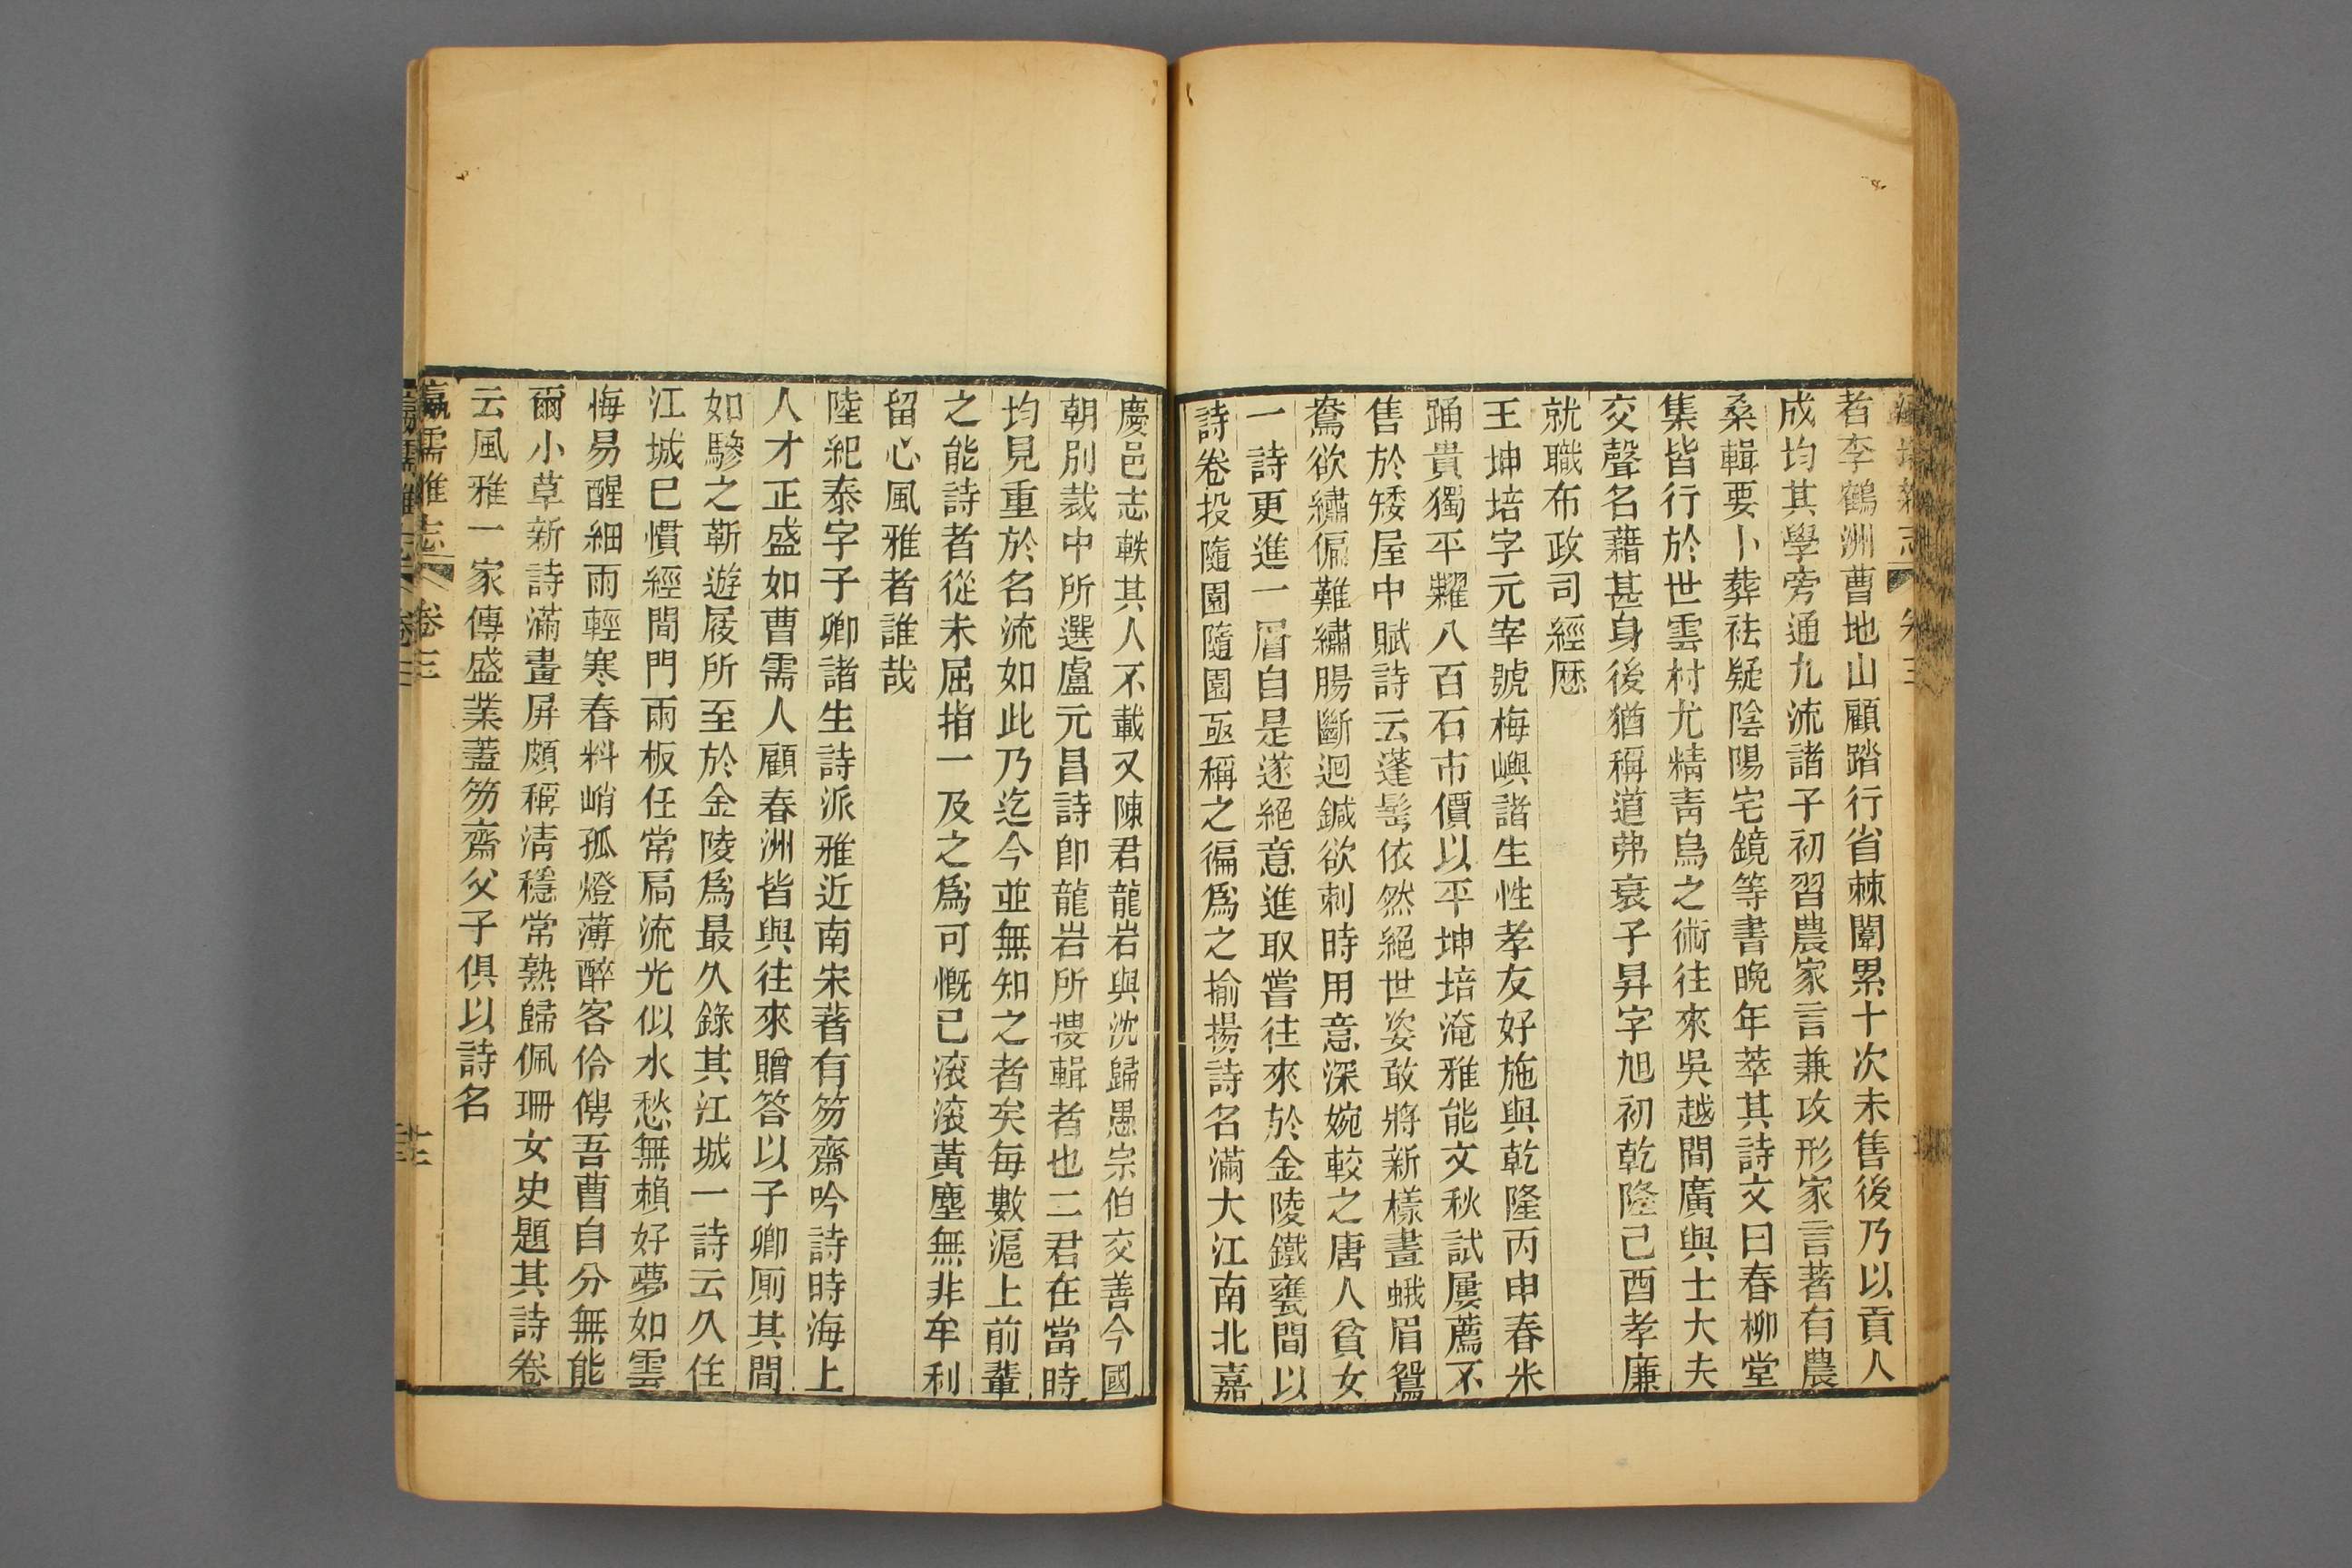 者李鶴洲曹地山顧踏行省棘闈累十次未售後乃以貢入
成均其學旁通九流諸子初習農家言兼攻形家言著有農
桑輯要卜葬祛疑陰陽宅鏡等書晚年萃其詩文曰春柳堂
集皆行於世雲村尤精青烏之術往來吳越間廣與士大夫
交聲名藉甚身後猶稱道弗衰子昇字旭初乾隆己酉孝廉
就職布政司經歷
王坤培字元宰號梅嶼諸生性孝友好施與乾隆丙申春米
踊貴獨平糶八百石市價以平坤培淹雅能文秋試屢薦不
售於矮屋中賦詩云蓬髩依然絕世姿敢將新樣畫蛾眉鴛
鴦欲繡偏難繡腸斷迴鍼欲刺時用意深婉較之唐人貧女
一詩更進一層自是遂絕意進取嘗往來於金陵鐵甕間以
詩卷投隨園隨園亟稱之徧為之揄揚詩名滿大江南北嘉
慶邑志軼其人不載又陳君龍岩與沈歸愚宗伯交善今國
朝別裁中所選盧元昌詩卽龍岩所搜輯者也二君在當時
均見重於名流如此乃迄今並無知之者矣每數滬上前輩
之能詩者從未屈指一及之為可慨已滾滾黃塵無非牟利
留心風雅者誰哉
陸紀泰字子卿諸生詩派雅近南宋著有笏齋吟詩時海上
人才正盛如曹需人顧春洲皆與往來贈答以子卿厠其間
如驂之靳遊屐所至於金陵為最久錄其江城一詩云久住
江城已慣經閒門兩板任常扃流光似水愁無賴好夢如雲
悔易醒細雨輕寒春料峭孤燈薄醉客伶俜吾曹自分無能
爾小草新詩滿畫屏頗稱清穩常熟歸佩珊女史題其詩卷
云風雅一家傳盛業蓋笏齋父子俱以詩名
瀛壖雜志 卷三